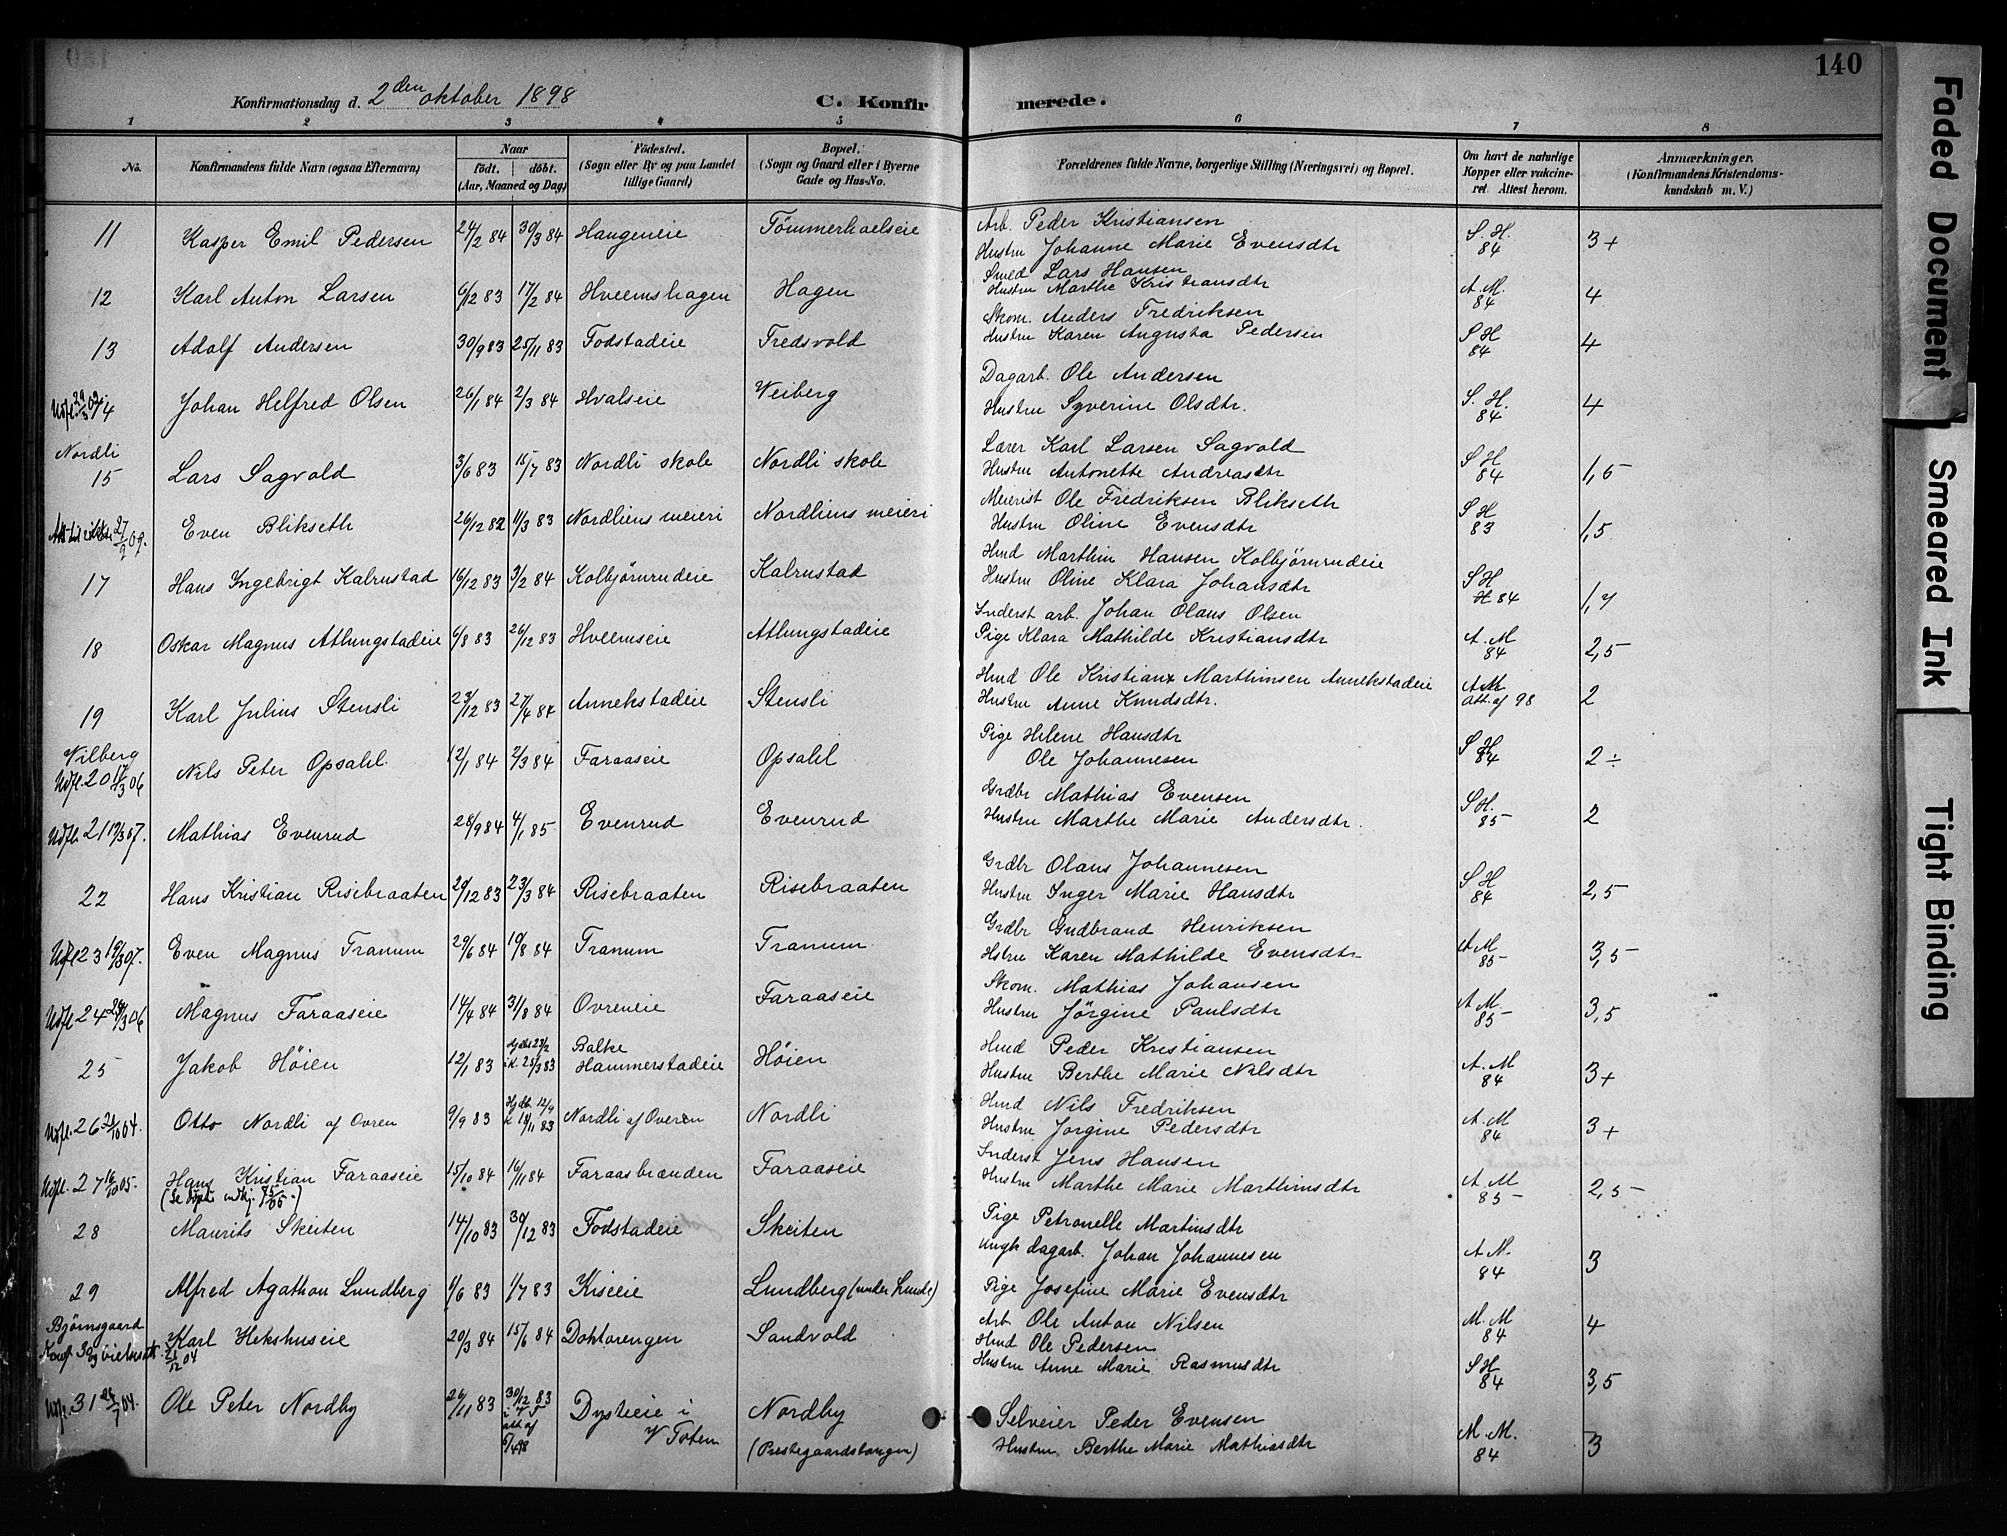 140
Konfirmationsdag d. 2den oktober 1898
C. Konfir merede.
1 2 3 4 5 6 7 8
No.
Konfirmandens fulde Navn (ogsaa Efternavn)
Naar
født. døbt.
(Aar, Maaned og Dag)
Fødested.
(Sogn eller By og paa Landet
tillige Gaard)
Bopæl.
(Sogn og Gaard eller i Byerne
Gade og Hus-No.
Forældrenes fulde Navne, borgerlige Stilling (Næringsvei) og Bopæl.
Om havt de naturlige
Kopper eller vakcine-
ret Attest herom.
Anmærkninger.
(Konfirmandens Kristendoms-
kundskab m. V.)
11 Kasper Emil Pedersen 24/2 84 30/3 84 Haugeneie Tömmerholseie Arb. Peder Kristiansen
Hustru Johanne Marie Evensdtr S. H. 84 3+
12 Karl Anton Larsen 6/12 83 17/2 84 Hveemshagen Hagen Smed Lars Hansen
Hustru Marthe Kristiansdtr A. M. 84 4
13 Adolf Andersen 30/9 83 25/11 83 Fodstadeie Fredsvold Skom. Anders Fredriksen
Hustru Karen Augusta Pedersen S H 84 4
14 Johan Helfred Olsen 26/1 84 2/3 84 Hvalseie Weiberg Dagarb. Ole Andersen
Hustru Syverine Olsdtr. S. H. 84 4
Nordli
15 Lars Sagvold 3/6 83 15/7 83 Nordli skole Nordli skole Lærer Karl Larsen Sagvold
Hustru Antonette Andreasdtr S H 84 1,5
27/9 09. Even Blikseth 26/12 82 11/3 83 Nordliens meieri Nordliens meieri Meierist Ole Fredriksen Blikseth
Hustru Oline Evensdtr S H 83 1,5
17 Hans Ingebrigt Kalrustad 16/12 83 3/2 84 Kolbjörnrudeie Kalrustad Hmd Marthin Hansen Kolbjörnrudeie
Hustru Oline Klara Johansdtr S H 84 1,7
18 Oskar Magnus Atlungstadeie 6/8 83 26/12 83 Hveemseie Atlungstadeie Inderst arb. Johan Olaus Olsen
Pige Klara Mathilde Kristiansdtr A. M 84 2,5
19 Karl Julius Stensli 23/12 83 27/4 84 Annekstadeie Stensli Hmd Ole Kristian Marthinsen Annekstadeie
Hustru Anne Knudsdtr. A M att. af 98 2
Vilberg
Udfl. 20 17/3 06 Nils Peter Opsahl 12/1 84 2/3 84 Faraaseie Opsahl Pige Helene Hansdtr
Ole Johannesen S H 84 2÷
Udfl. 21 19/3 07. Mathias Evenrud 28/9 84 4/1 85 Evenrud Evenrud Grdbr Mathias Evensen
Hustru Marthe Marie Andersdtr. S H. 85 2
22 Hans Kristian Risebraaten 29/12 83 23/3 84 Risebraaten Risebraaten Grdbr Olaus Johannesen
Hustru Inger Marie Hansdtr S H 84 2,5
Udfl 23 19/3 07. Even Magnus Tranum 29/6 84 10/8 84 Tranum Tranum Grdbr Gudbrand Henriksen
Hstru Karen Mathilde Evensdtr A M 85 3,5
Udfl 24 28/3 06 Magnus Faraaseie 14/4 84 31/8 84 Ovreneie Faraaseie Skom. Mathias Johansen
Hustru Jörgine Paulsdtr A M. 85 3,5
25 Jakob Höien 12/1 83 Hj dbt 27/2 i K. 25/3 83 Balke Hammerstadeie Höien Hmd Peder Kristiansen
Hustru Berthe Marie Nilsdtr A. M 84 3+
Udfl. 26 24/10 04. Otto Nordli af Ovren 9/9 83 Hj db. 12/9 18/11 83 Nordli af Overen Nordli Hmd Nils Fredriksen
Hustru Jorgine Pedersdtr A. M 84 3+
Udfl. 27 16/10 05. Hans Kristian Faraaseie 15/10 84 16/11 84 Faraasbraenden Faraaseie Inderst Jens Hansen
Hustru Marthe Marie Marthinsdtr A. M 85 2,5
28 Maurits Skeiten 14/10 83 30/12 83 Fodstadeie Skeiten Pige Petronelle Martinsdtr
Ungk dagarb. Johan Johannesen A M. 84 3
29 Alfred Agathon Lundberg 1/6 83 1/7 83 Kiseie Lundberg (under Lunde) Pige Josefine Marie Evensdtr
Arb Ole Anton Nilsen M. M 84 4
Björnsgaard
30 Karl Hekshuseie 20/3 84 15/6 84 Doktorengen Sandvold Hmd Ole Pedersen
Hustru Anne Marie Rasmusdtr S H 84 3,5
31 Ole Peter Nordby 26/11 83 30/12 83 Dysteeie i V Toten Nordby (Prestegaardstangen) Selveier Peder Evensen
Hustru Berthe Marie Mathiasdtr M. M. 84 3
Faded Document
Smeared Ink
Tight Binding